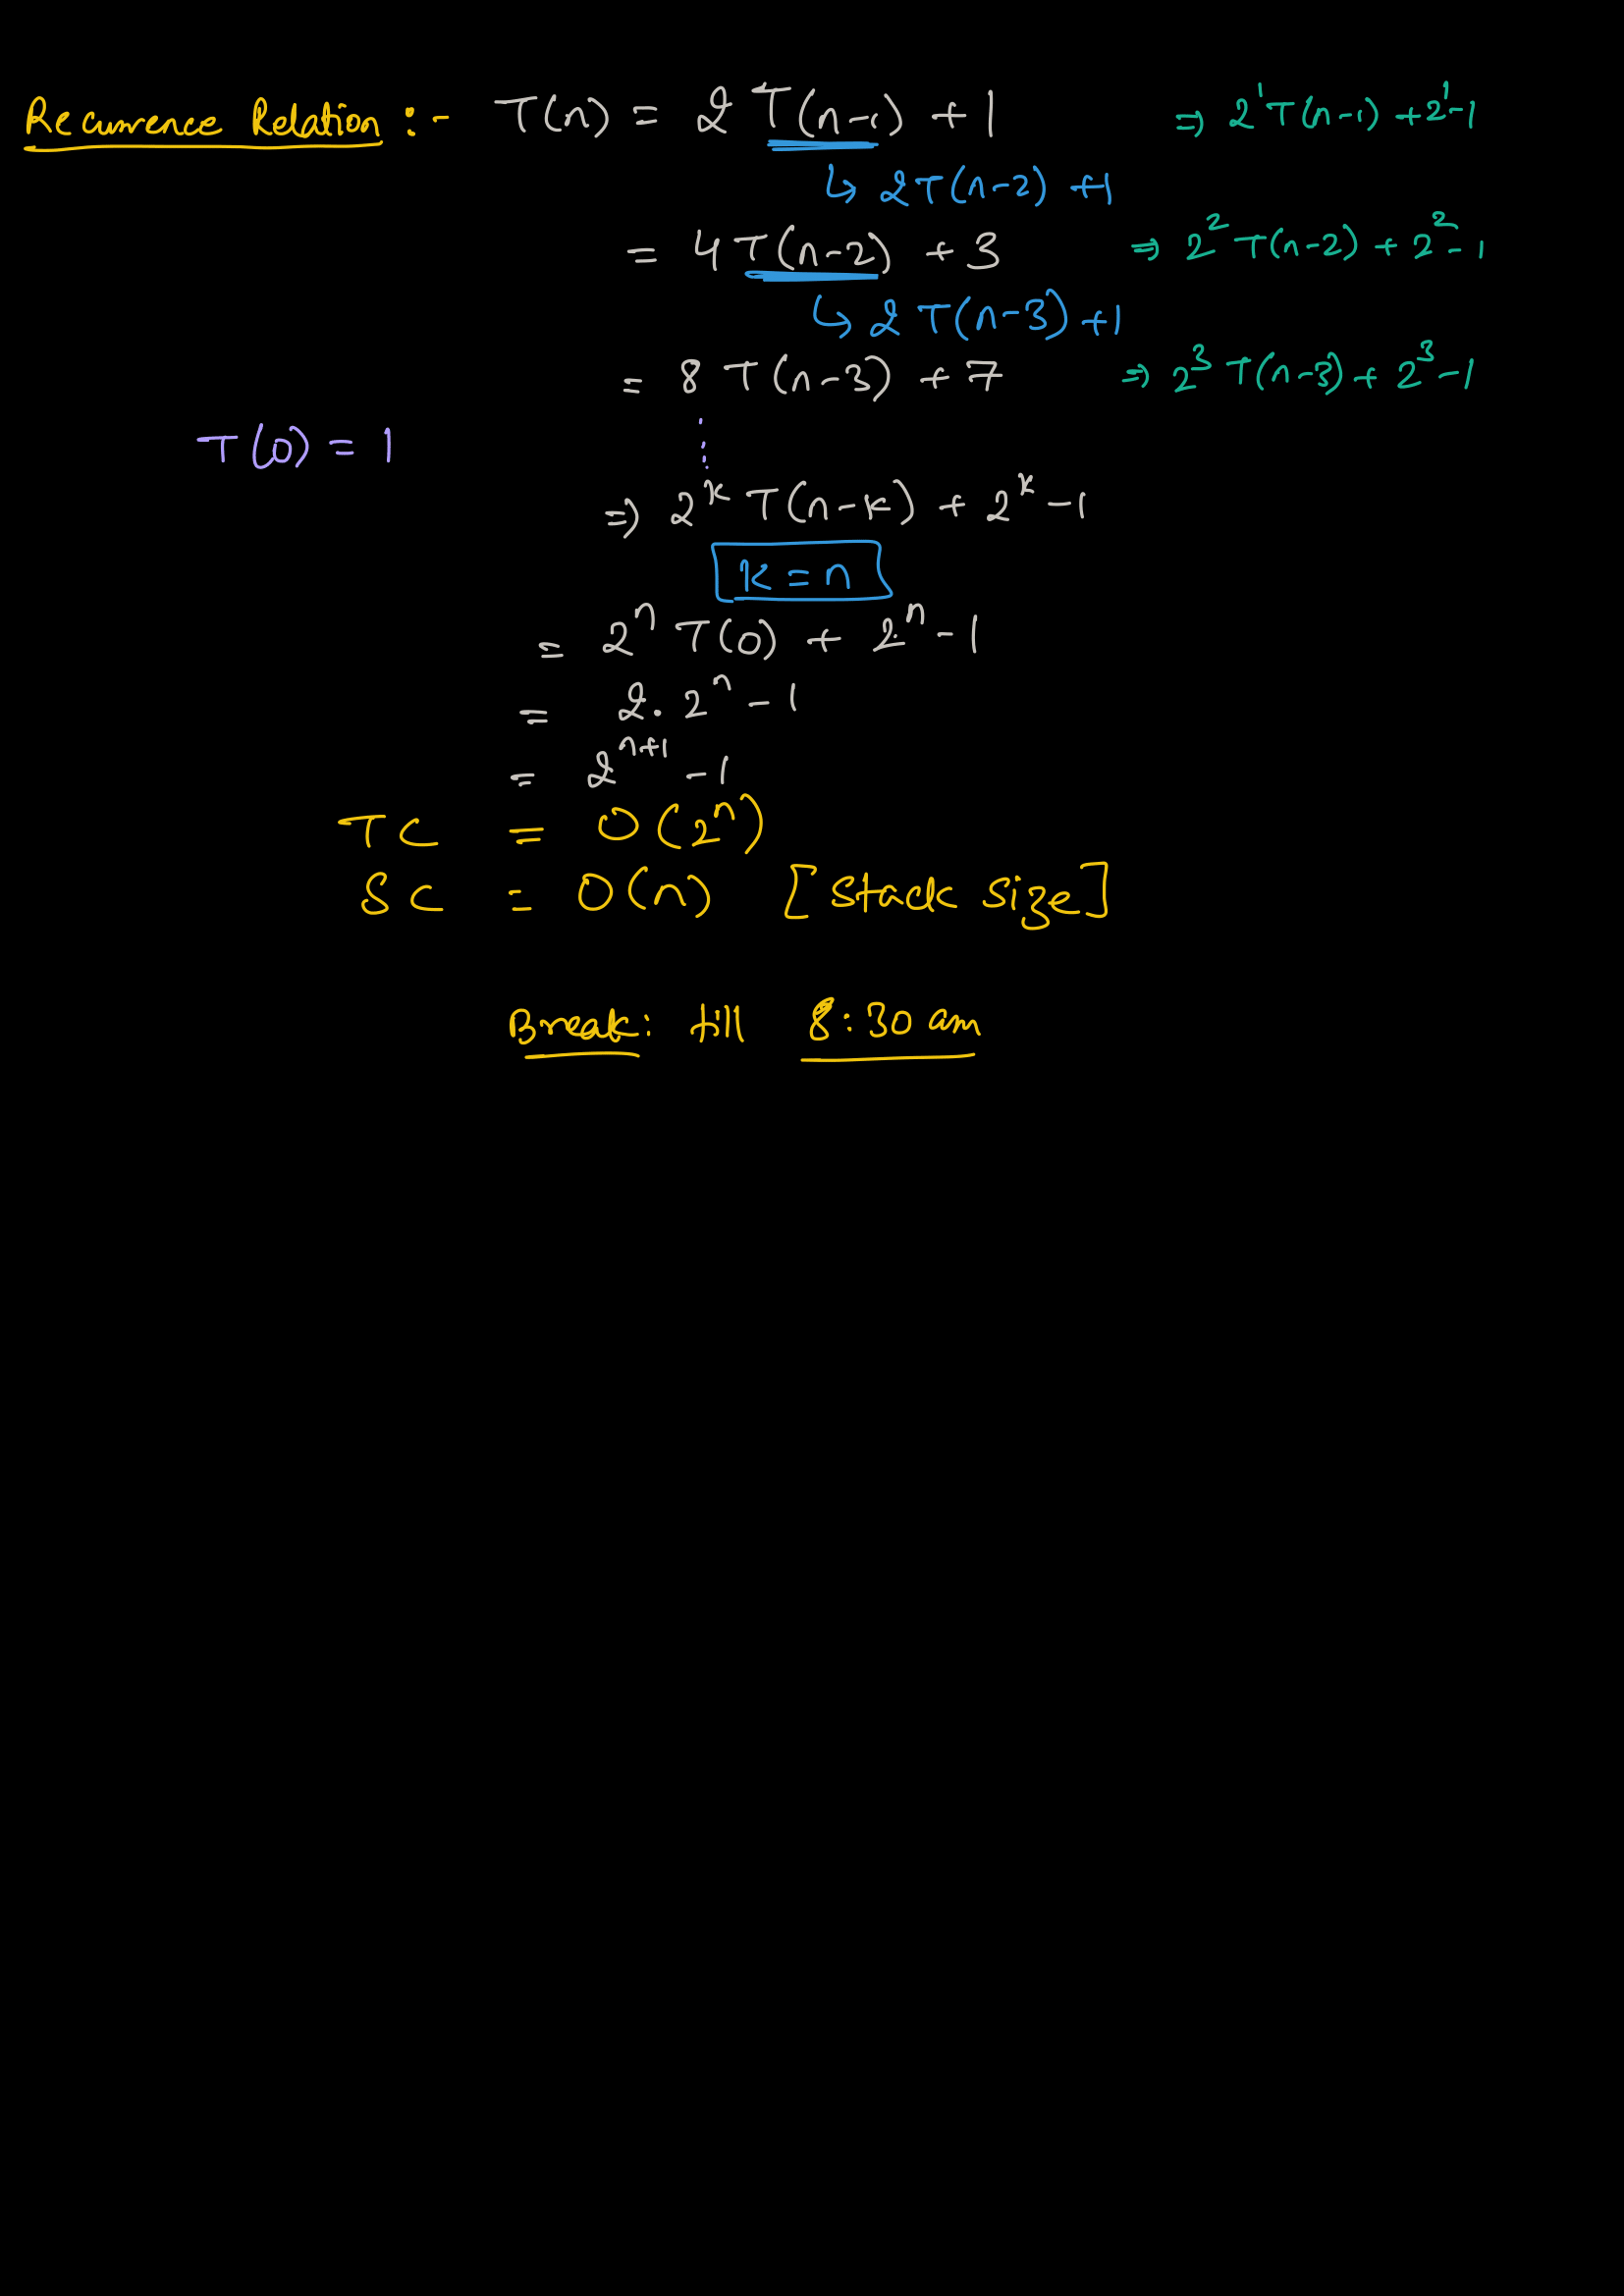 Recurrence Relation :- T(n) = 2 T(n-1) + 1 ⇒ 2¹T(n-1) + 2¹-1
↳ 2T(n-2) +1
= 4T(n-2) + 3 ⇒ 2² T(n-2) + 2²-1
↳ 2 T(n-3) +1
= 8 T(n-3) + 7 ⇒ 2³ T(n-3) + 2³-1
T(0) = 1
⇒ 2ᵏ T(n-k) + 2ᵏ -1
k = n
= 2ⁿ T(0) + 2ⁿ -1
= 2. 2ⁿ - 1
= 2ⁿ⁺¹ - 1
TC = O(2ⁿ)
SC = O(n) [Stack Size]
Break: till 8:30 am